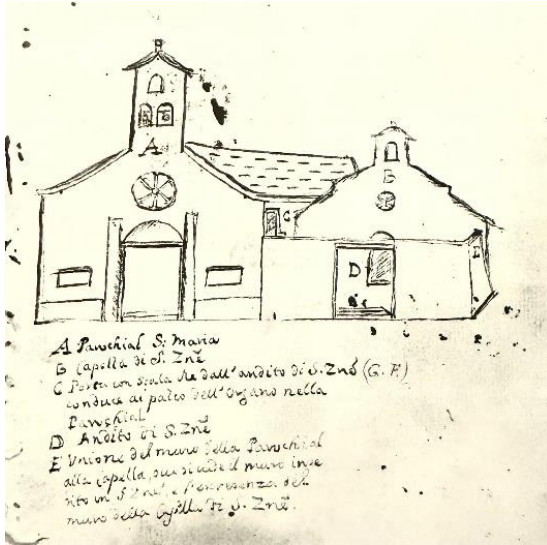 A
B
C
D
E
A Parochial S: Maria
B Capella di S. Znē
C Porta con scala che dall' andito di S. Znē (G. F.)
conduce al palco dell' Organo nella
Parochial
D Andito di S. Znē
E Unione del muro della Parochial
alla capella, ove si vede il muro inse
rito in S. Znē, e l' del
muro della Capella di S. Znē.